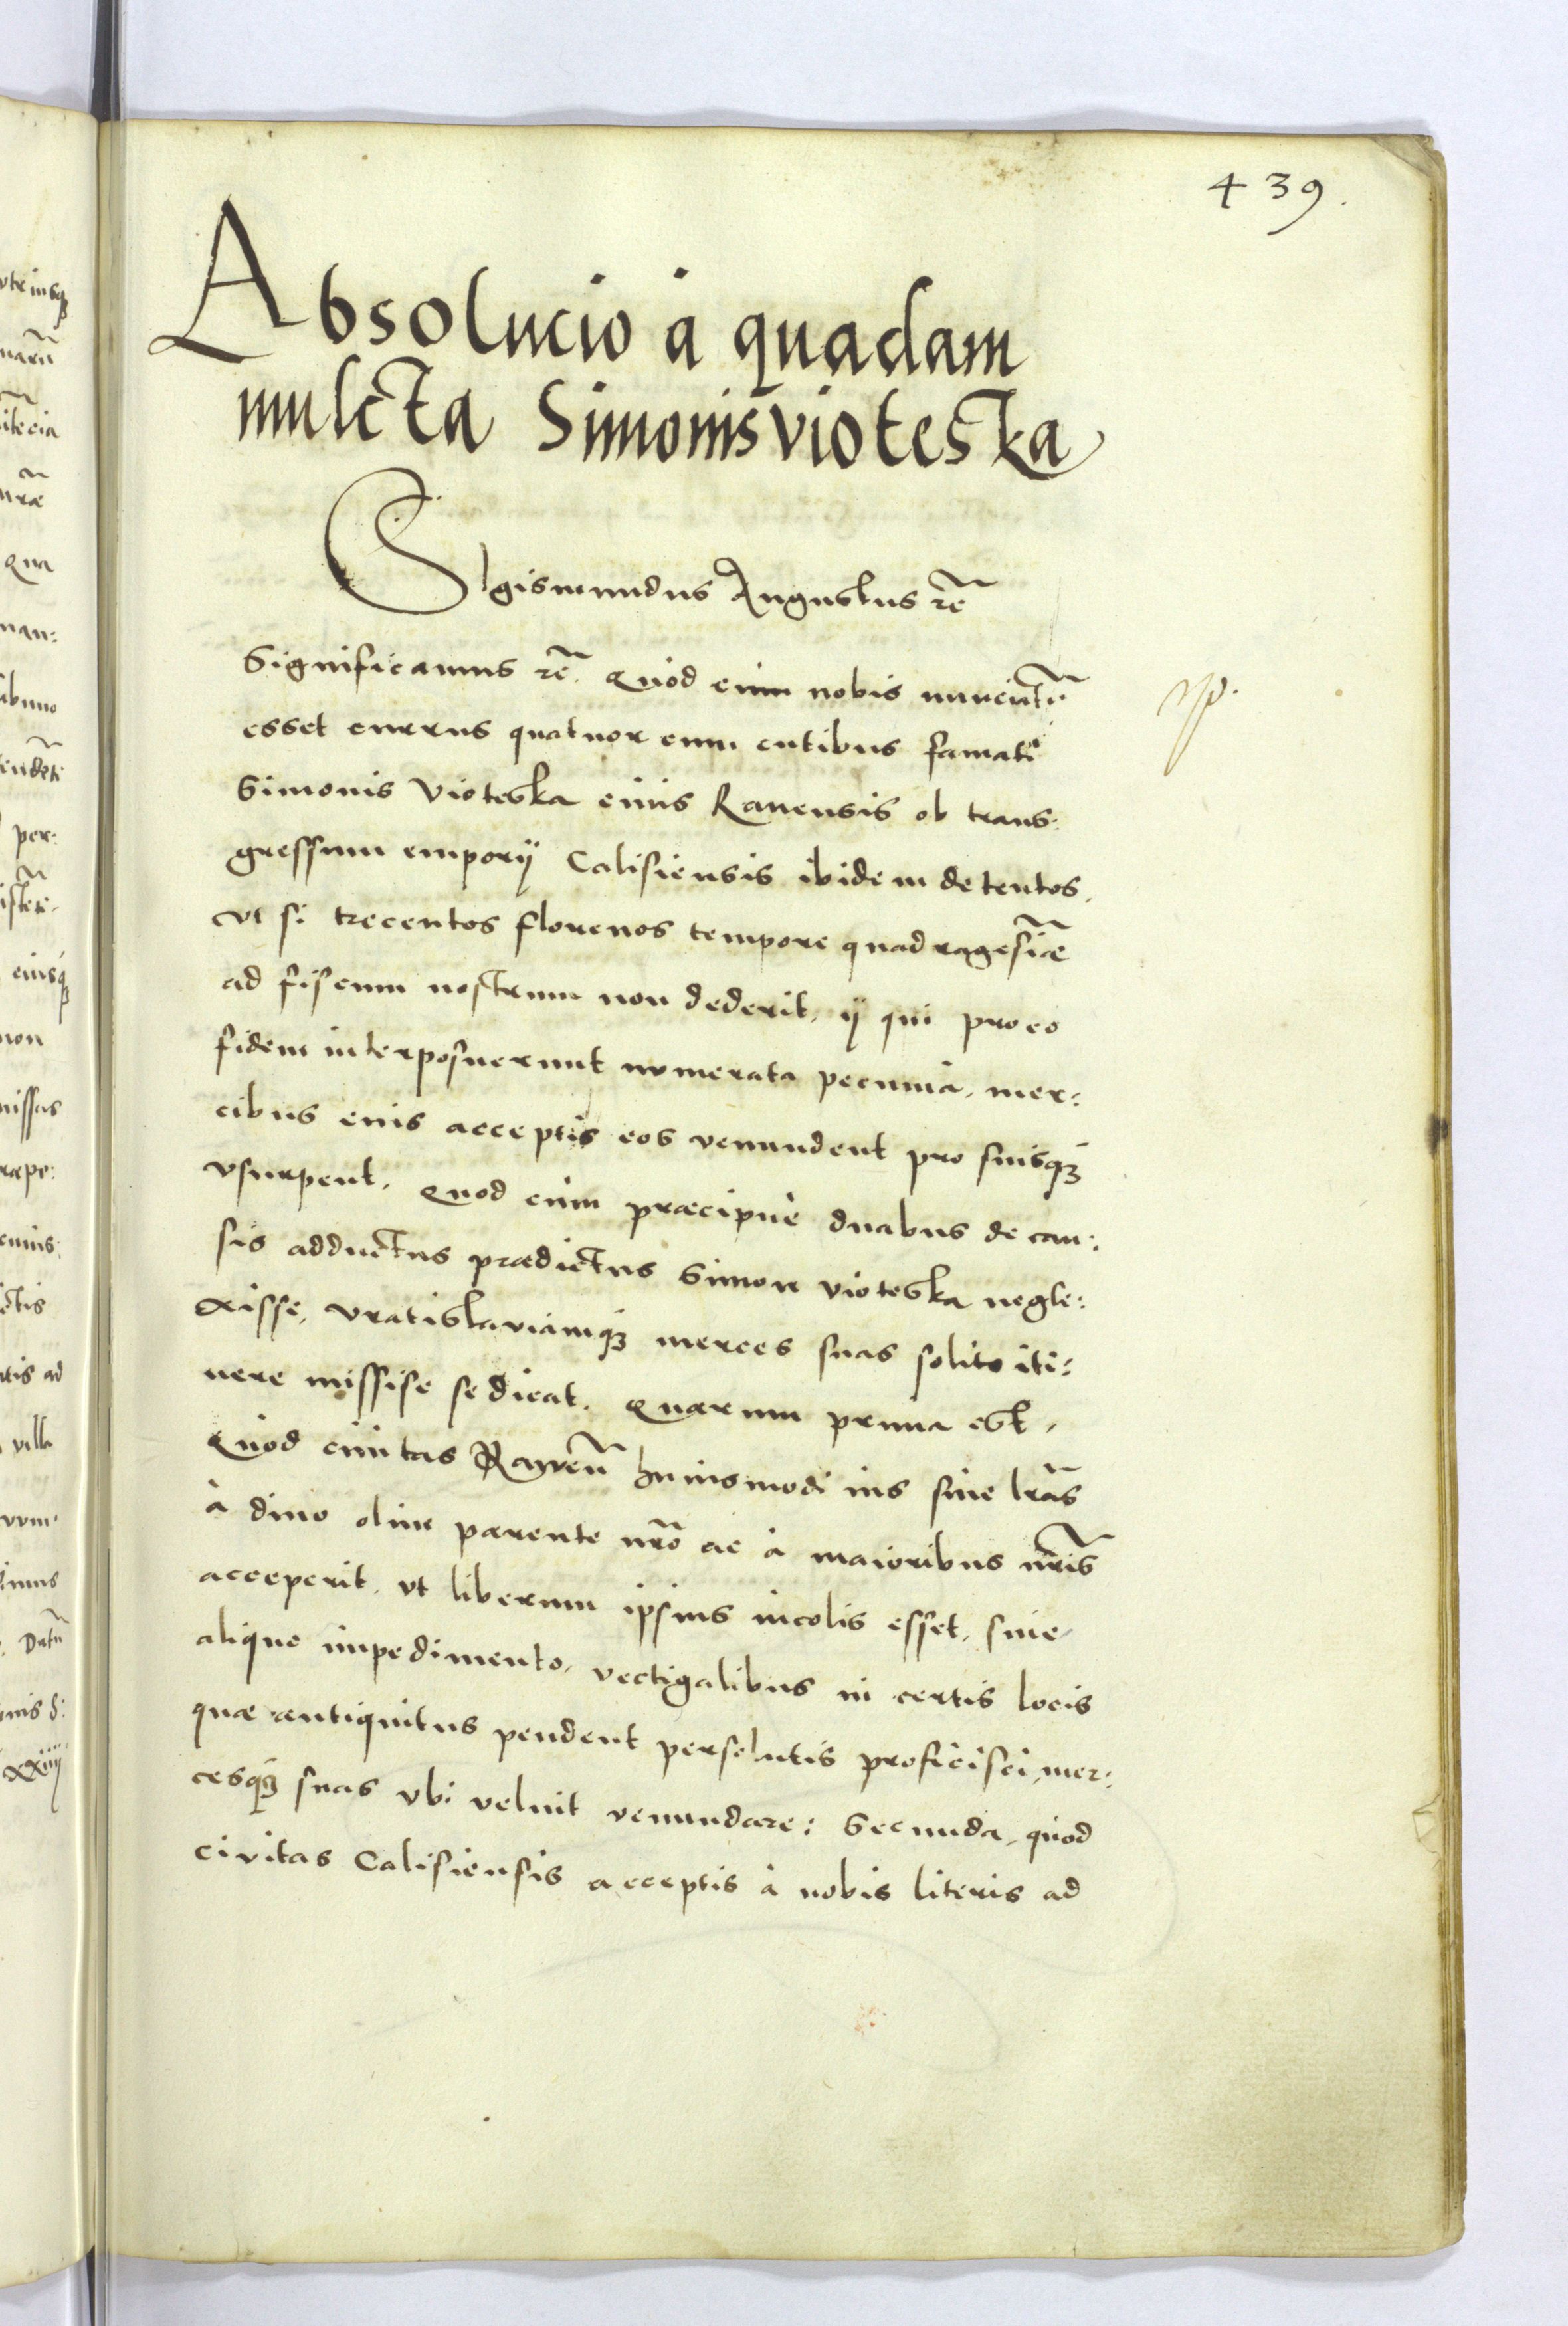 439.
Absolucio à quadam
mulcta Simonis Vioteska
Sigismundus Augustus rē
Significamus rē. Quòd cùm nobis nunciatū
esset currus quatuor cum cutibus famati
Simonis Vioteska ciuis Rauensis ob trans:
gressum emporij Calisiensis ibidem detentos,
vt si trecentos florenos tempore quadragesiæ
ad fiscum nostrum non dederit, ij qui pro eo
fidem interposuerunt numerata pecunia, mer:
cibus eius acceptis eos venundent pro suisq3
vsurpent. Quod cùm præcipuè duabus de cau:
sis adductus prædictus Simon Vioteska negle:
xisse, Vratislaviamq3 merces suas solito iti:
nere missise se dicat. Quarum prima est,
Quòd ciuitas Rawen̄ huiusmodi ius siue lrās
à diuo olim parente nr̄o ac à maioribus nr̄is
acceperit, vt liberum ipsius incolis esset, sine
alique impedimento, vectigalibus in certis locis
quæ antiquitus pendent persolutis proficisci, mer:
cesq3 suas vbi veluit venundare: Secunda, quòd
civitas Calisiensis acceptis à nobis literis ad
utriusq3
Qua
man:
per:
eiusq3
non
missas
villa
Datū
xxiiij